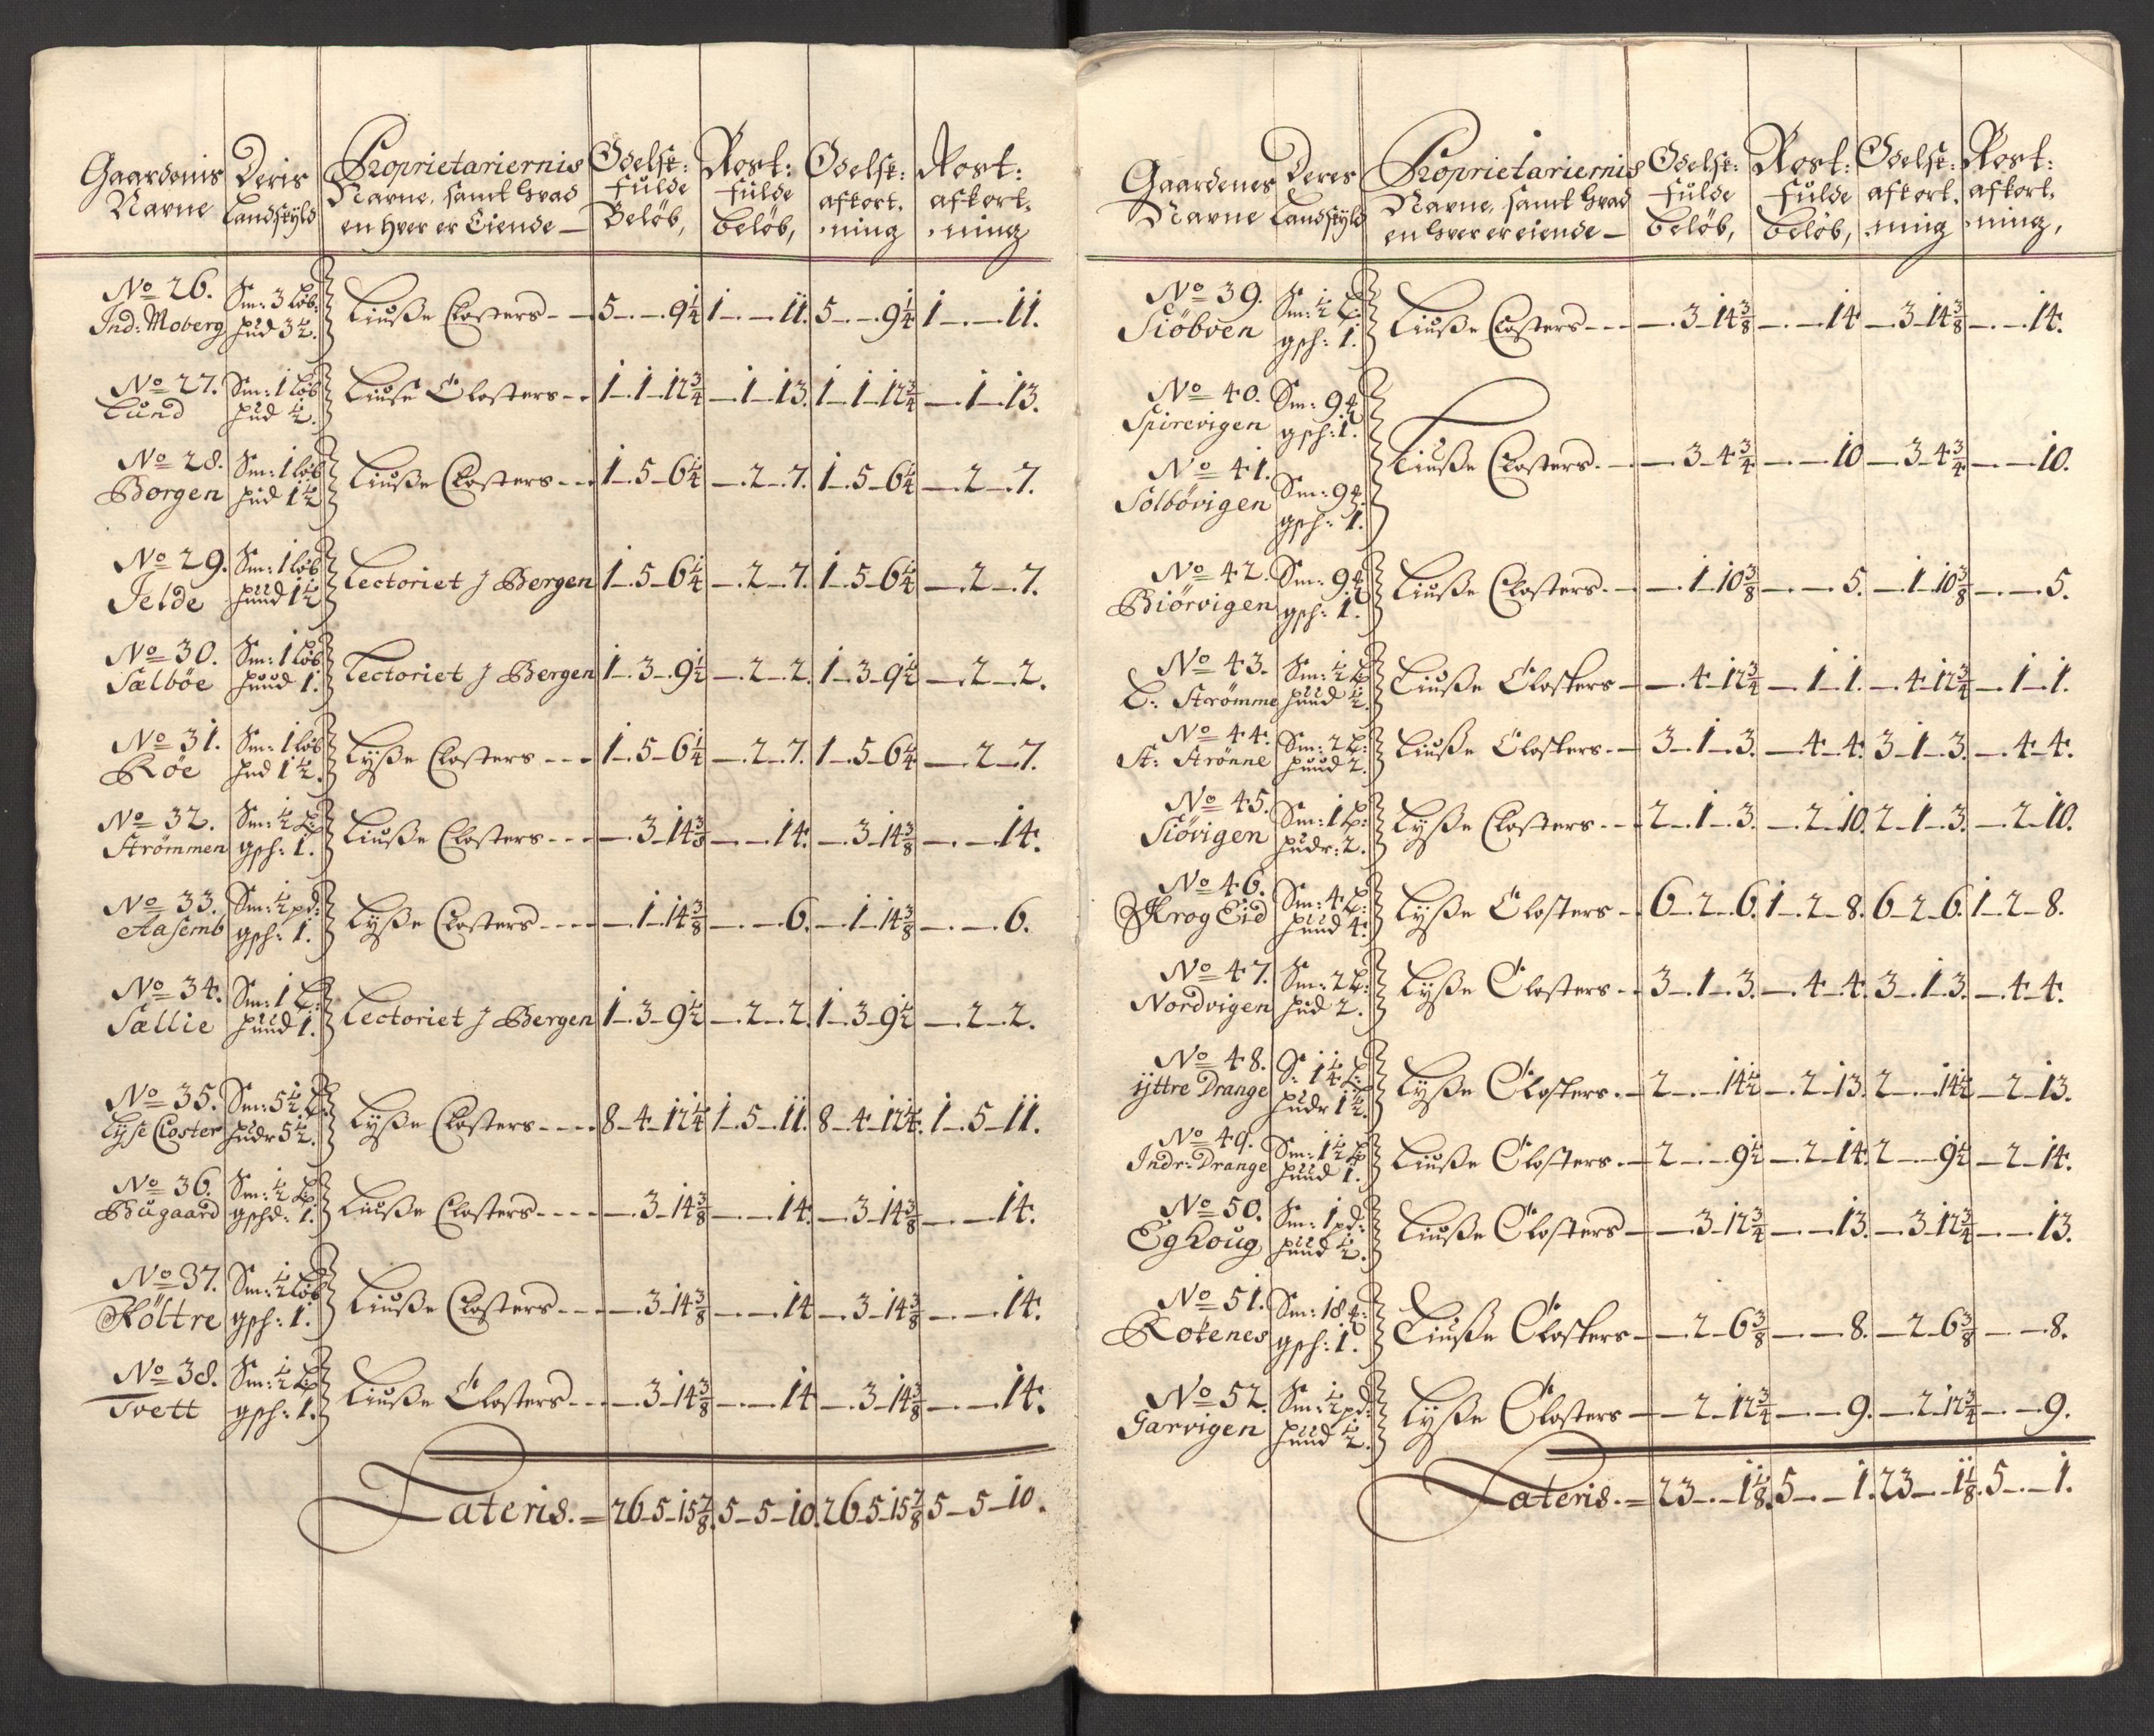 Gaardenis Navne | Deris Landskyld | Proprietariernis Navne, samt hvad en hver er Eiende | Odelsk: fulde Beløb, | Rost: fulde beløb, | Odelsk: afkort. ning | Rost: afkort. ning
No 26. Ind: Moberg | Sm: 3 Løb: hud 3½. | Liusse Closters | 5 - - 9¼ | 1 - - 11. | 5 - - 9¼ | 1 - - 11.
No 27. Lund | Sm: 1 Løb hud ½. | Liuse Closters | 1 - 1 - 12¾ | - 1 - 13. | 1 - 1 - 12¾ | - 1 - 13.
No 28. Borgen | Sm: 1 løb hud 1½ | Liusse Closters | 1 - 5 - 6¼ | - 2 - 7. | 1 - 5 - 6¼ | - 2 - 7.
No 29. Jelde | Sm: 1 løb huud 1½ | Lectoriet J Bergen | 1 - 5 - 6¼ | - 2 - 7. | 1 - 5 - 6¼ | - 2 - 7.
No 30. Sælbøe | Sm: 1 Løb huud 1. | Lectoriet J Bergen | 1 - 3 - 9½ | - 2 - 2. | 1 - 3 - 9½ | - 2 - 2.
No 31. Røe | Sm: 1 løb hud 1½. | Lysse Closters | 1 - 5 - 6¼ | - 2 - 7. | 1 - 5 - 6¼ | - 2 - 7.
No 32. Strömmen | Sm: ½ L: gsch: 1. | Liusse Closters | - 3 - 14⅜ | - - 14. | - 3 - 14⅜ | - - 14.
No 33. Aasemb | Sm: ½ pd: gsch: 1. | Lysse Closters | - 1 - 14⅜ | - - 6. | - 1 - 14⅜ | - - 6.
No 34. Sællie | Sm: 1 L: huud 1. | Lectoriet J Bergen | 1 - 3 - 9½ | - 2 - 2. | 1 - 3 - 9½ | - 2 - 2.
No 35. Lyse Closter | Sm: 5½ L: hudr 5½. | Lysse Closters | 8 - 4 - 12¼ | 1 - 5 - 11. | 8 - 4 - 12¼ | 1 - 5 - 11.
No 36. Bugaard | Sm: ½ L: gschd: 1. | Liusse Closters | - 3 - 14⅜ | - - 14. | - 3 - 14⅜ | - - 14.
No 37. Røttre | Sm: ½ Løb gsch: 1. | Liusse Closters | - 3 - 14⅜ | - - 14 | - 3 - 14⅜ | - - 14.
No 38. Tvett | Sm: ½ L: gsch: 1. | Liusse Closters | - 3 - 14⅜ | - - 14 | - 3 - 14⅜ | - - 14.
Lateris. = | 26 - 5 - 15⅞ | 5 - 5 - 10. | 26 - 5 - 15⅞ | 5 - 5 - 10.
Gaardenes Navne | Deres Landskyld | Proprietariernis Navne, samt hvad en hver er eiende | Odelsk: fulde beløb, | Rost: fulde beløb, | Odelsk: afkort. ning | Rost: afkort. ning,
No 39. Siøboen | Sm: ½ L: gsch: 1. | Liusse Closters | - 3 - 14⅜ | - - 14 | - 3 - 14⅜ | - - 14.
No 40. Spirevigen | Sm: 9 gsch: 1.
No 41. Solbøvigen | Sm: 9 gsch: 1. | Liusse Closters | - 3 - 4¾ | - - 10 | - 3 - 4¾ | - - 10.
No 42. Biörvigen | Sm: 9 gsch: 1. | Liusse Closters | - 1 - 10⅜ | - - 5. | - 1 - 10⅜ | - - 5.
No 43. L: Strömme | Sm: ½ L huud ½. | Liusse Closters | - 4 - 12¾ | - 1 - 1. | - 4 - 12¾ | - 1 - 1.
No 44. St: Strönne | Sm: 2 L: huud 2. | Liusse Closters | 3 - 1 - 3. | - 4 - 4. | 3 - 1 - 3. | - 4 - 4.
No 45. Siövigen | Sm: 1 L: hudr: 2. | Lysse Closters | 2 - 1 - 3. | - 2 - 10. | 2 - 1 - 3. | - 2 - 10.
No 46. Krog Eid | Sm: 4 L: huud 4. | Lysse Closters | 6 - 2 - 6. | 1 - 2 - 8. | 6 - 2 - 6. | 1 - 2 - 8.
No 47. Nordvigen | Sm: 2 L: hud 2. | Lysse Closters | 3 - 1 - 3. | - 4 - 4. | 3 - 1 - 3. | - 4 - 4.
No 48. ÿttre Drange | S: 1¼ L: hudr 1½. | Lysse Closters | 2 - - 14½ | - 2 - 13. | 2 - - 14½ | - 2 - 13.
No 49. Indr: Drange | Sm: 1½ L huud 1. | Liusse Closters | 2 - - 9½ | - 2 - 14. | 2 - - 9½ | - 2 - 14.
No 50. Eghoug | Sm: 1 pd: huud ½. | Liusse Closters | - 3 - 12¾ | - - 13. | - 3 - 12¾ | - - 13.
No 51. Røtenes | Sm: 18 gsch: 1. | Liusse Closters | - 2 - 6⅜ | - - 8. | - 2 - 6⅜ | - - 8.
No 52. Garvigen | Sm: ½ pd: huud ½. | Lysse Closters | - 2 - 12¾ | - - 9. | - 2 - 12¾ | - - 9.
Lateris. = | 23 - - 1⅛. | 5 - - 1. | 23 - - 1⅛. | 5 - - 1.